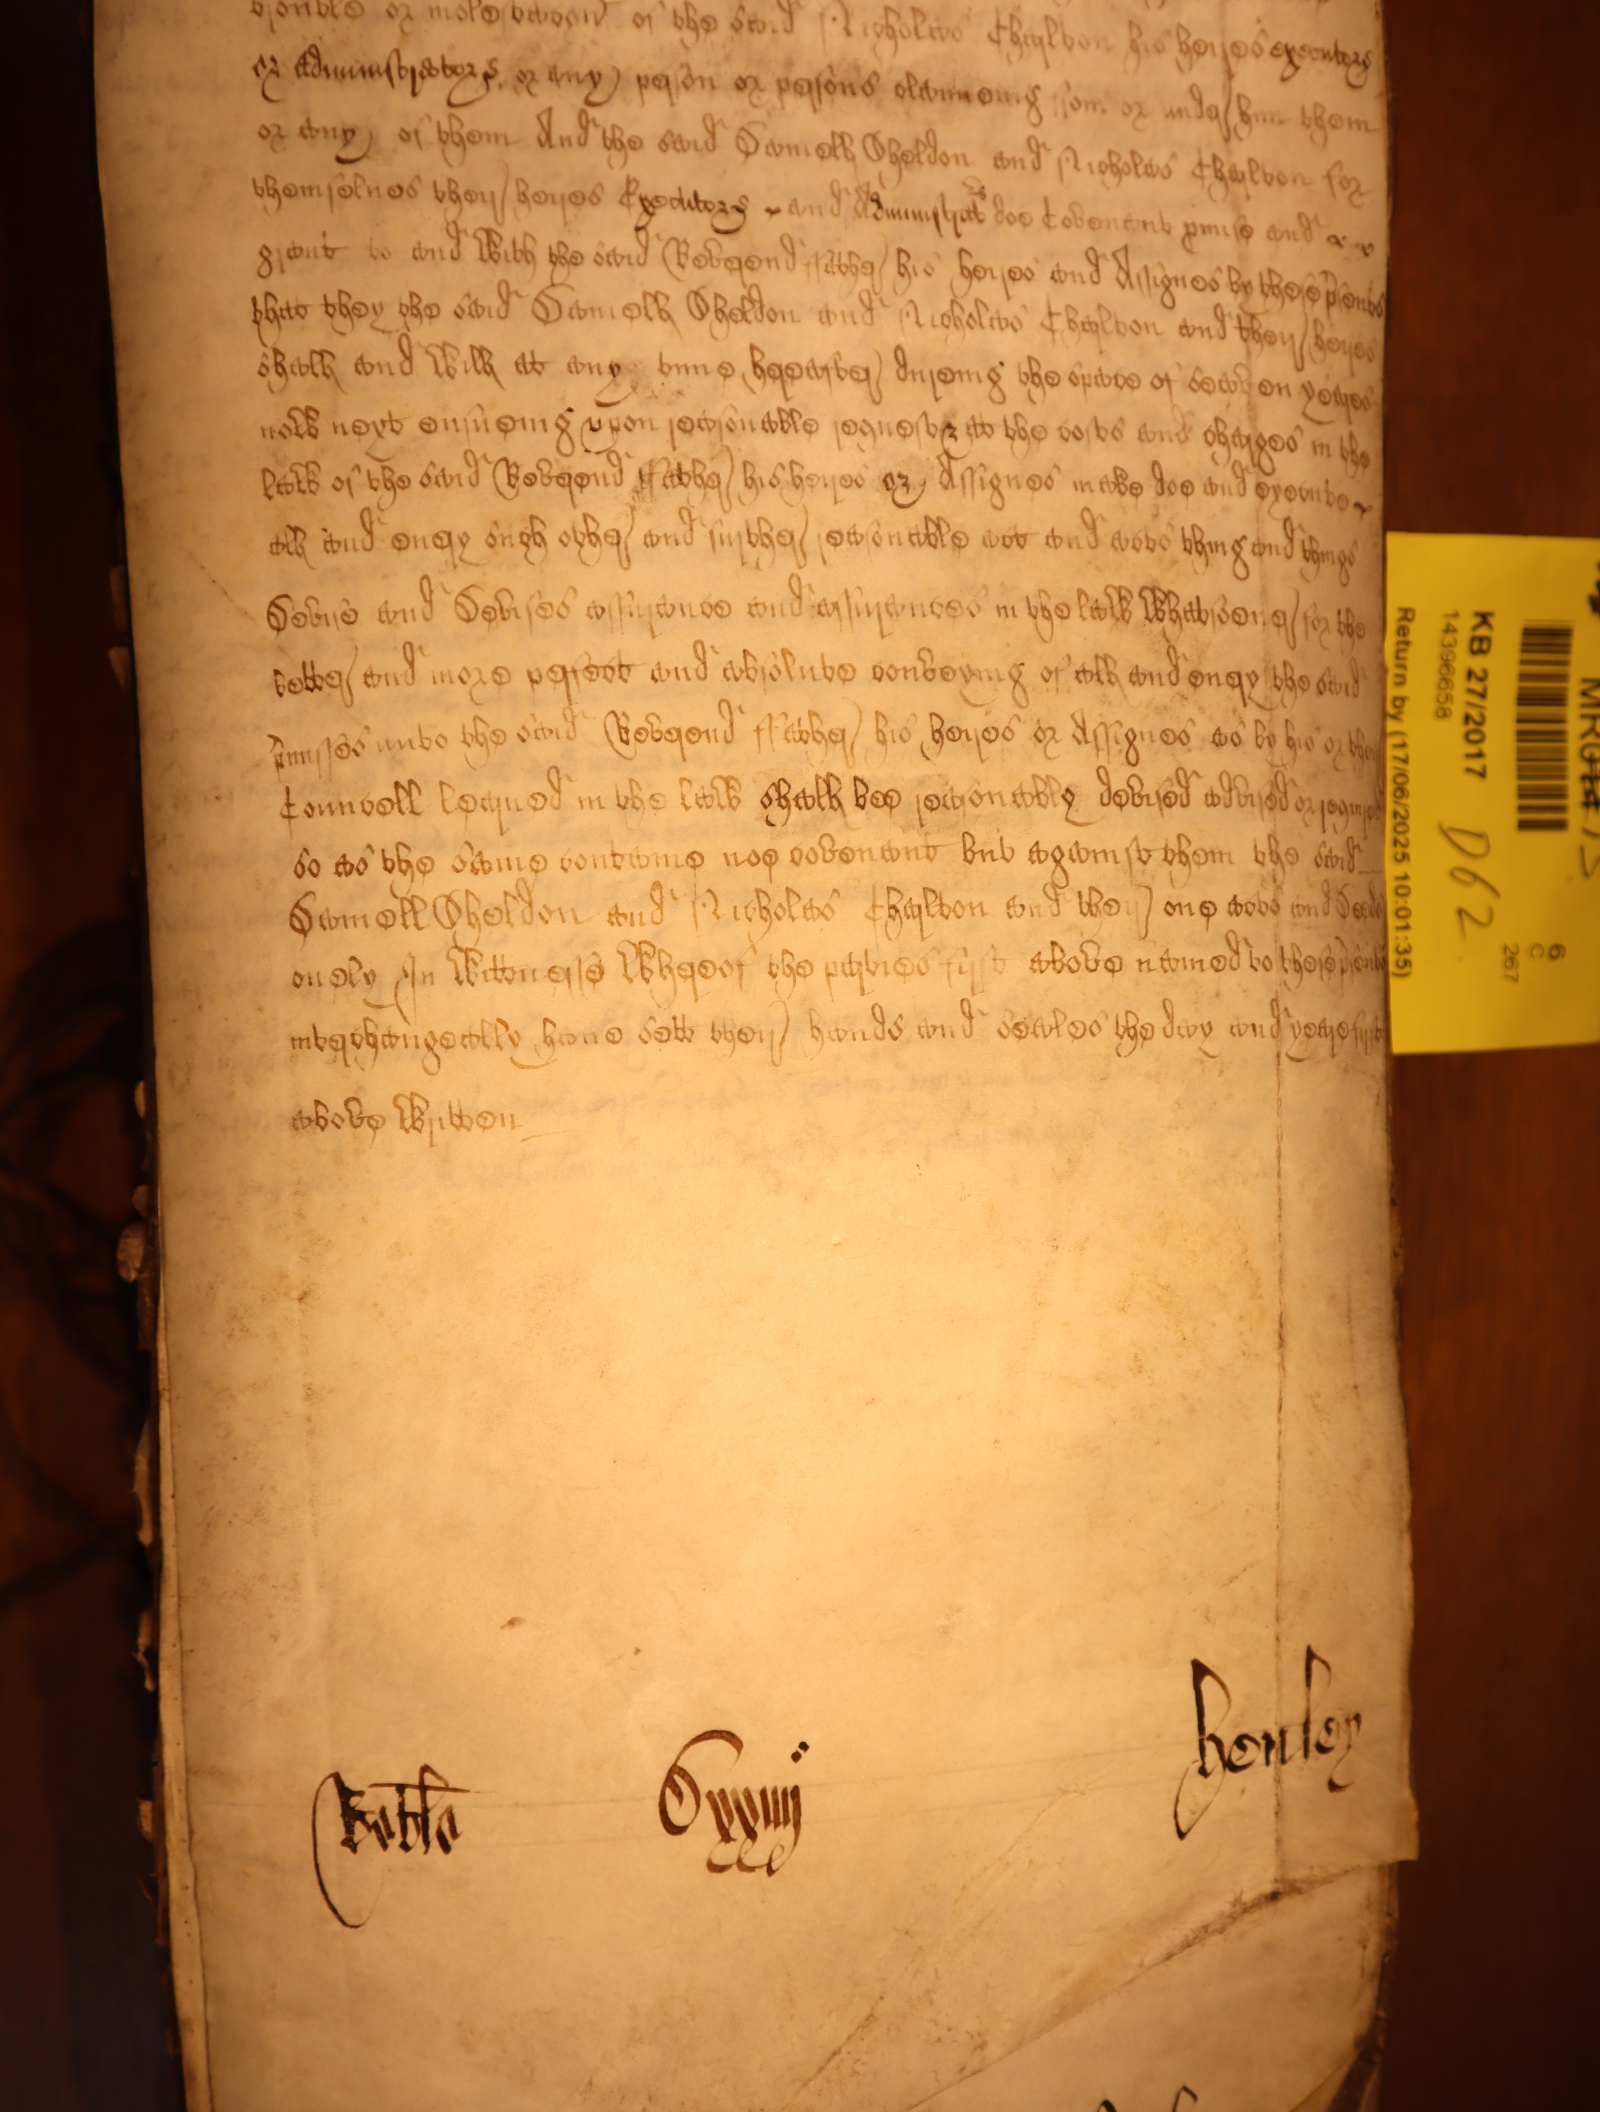 trouble or molestacon of the said Nicholas Charlton his heires executors
or administrators or any person or persons claimeing from or under him them
or any of them And the said Samuell Sheldon and Nicholas Charlton for
themselues their heires Executors and Administrat rs doe Covenant pmise and
graunt to and with the said Reverend ffather his heires and Assignes by these psents
that they the said Samuell Sheldon and Nicholas Charlton and their heires
shall and will at any time hereafter dureing the space of seaven yeares
now next ensueing upon reasonable request & at the costs and charges in the
law of the said Reverend ffather his heires or Assignes make doe and execute
all and euery such other and further reasonable act and acts thing and things
Devise and Devises assurance and assurances in the law whatsoeuer for the
better and more perfect and absolute conveying of all and euery the said
pmisses unto the said Reverend ffather his heires or Assignes as by his or their
Councell learned in the law shall bee reasonably devised advised or required
so as the same containe noe covenant but against them the said
Samuell Sheldon and Nicholas Charlton and their one acts and Deeds
onely In Wittnesse whereof the parties first above named to these psents
interchangeablly haue sett their hands and seales the day and yeare first
above written
Henley
KB 27/2017
14396658
Return by (17/06/2025 10:01:35)
D62
6
C
267